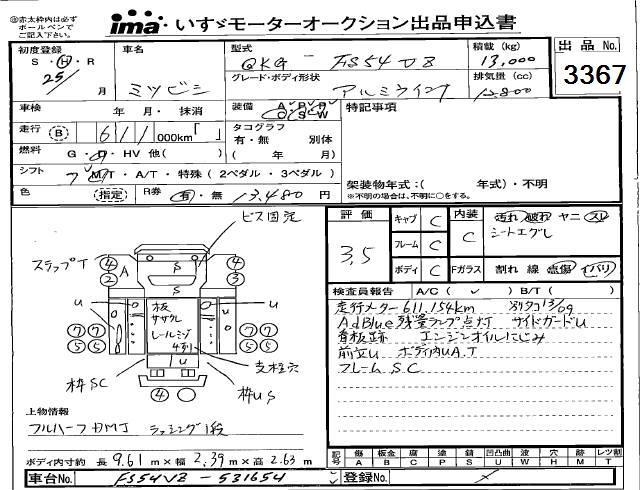 赤太枠内は必ず
ボールペンで
ご記入下さい。
ima・いすゞモーターオークション出品申込書
初度登録 車名 型式 積載(kg) 出品No.
S・H・R ミツビシ QKG-FS54VZ 13,000
25 年 月 グレード・ボディ形状 排気量(cc) 3367
アルミウイング 12800
車検 年 月・抹消 装備 A P P 特記事項
C S W
走行 B 611 000km「 」 タコグラフ
有・無 別体
燃料 G・D・HV 他( ) ( 年 月)
シフト 7 M/T・A/T・特殊(2ペダル・3ペダル)
架装物年式:( 年式)・不明
※不明の場合は、不明に○をする。
色 (指定) R券 有・無 13,480 円
ビス固定
評価 キャブ C 内装 汚れ 破れ ヤニ スレ
3.5 フレーム C C シートエグレ
ボディ C Fガラス 割れ 線 点傷 イバリ
ステップT
④ ② A S S ④ ③
検査員報告 A/C( ✓ ) B/T( )
走行メーター611,154km 別タコ13/09
AdBlue残量ランプ点灯 サイドガードU
看板跡 エンジンオイルにじみ
前立U ボディ内UA.T
フレームSC
U U
板
ササクレ
レールミゾ
4列
⑦⑦ ⑤⑤ ⑦⑦ ⑤⑤
支柱穴
U
枠SC 枠US
④
上物情報
フルハーフDMJ ラッシング1段
ボディ内寸約 長 9.61 m×幅 2.39 m×高 2.63 m
記号 傷 板金 腐 塗 錆 凹凸曲 波 穴 跡 レツ割
A B C P S U W H M T
車台No. FS54VZ-531654 登録No.